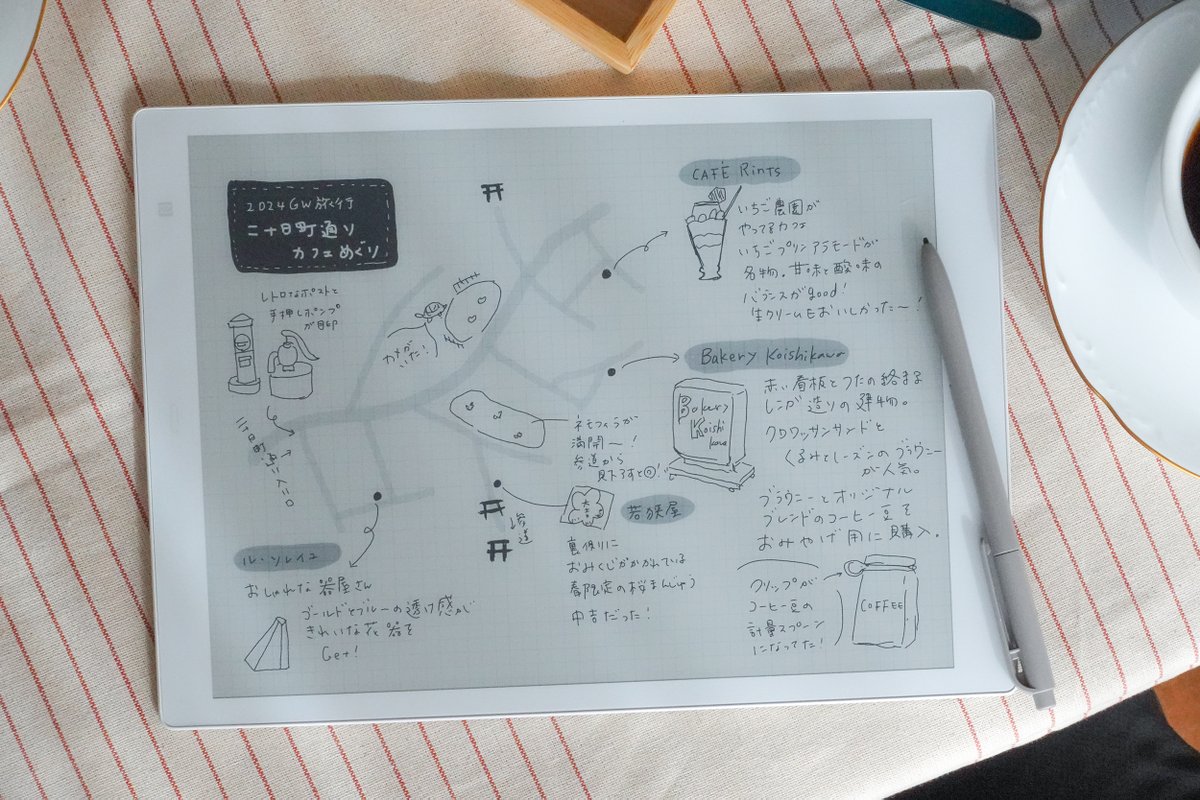 2024GW旅行
二十日町通り
カフェめぐり
レトロなポストと
手押しポンプ
が目印
二十日町通り入口
カメが
いた!
CAFE Rints
いちご農園が
やってるカフェ
いちごプリンアラモードが
名物。甘味と酸味の
バランスがgood!
生クリームもおいしかった〜!
Bakery Koishikawa
Bakery
Koishi
kawa
赤い看板とつたの絡まる
レンガ造りの建物。
クロワッサンサンドと
くるみとレーズンのブラウニー
が人気。
ブラウニーとオリジナル
ブレンドのコーヒー豆を
おみやげ用に購入。
クリップが
コーヒー豆の
計量スプーン
になってた!
COFFEE
ネモフィラが
満開〜!
参道から
見下ろすと◎!
若狭屋
参道
裏側に
おみくじがかかれている
春限定の桜まんじゅう
中吉だった!
ル・ソレイユ
おしゃれな器屋さん
ゴールドとブルーの透け感が
きれいな花器を
Get!